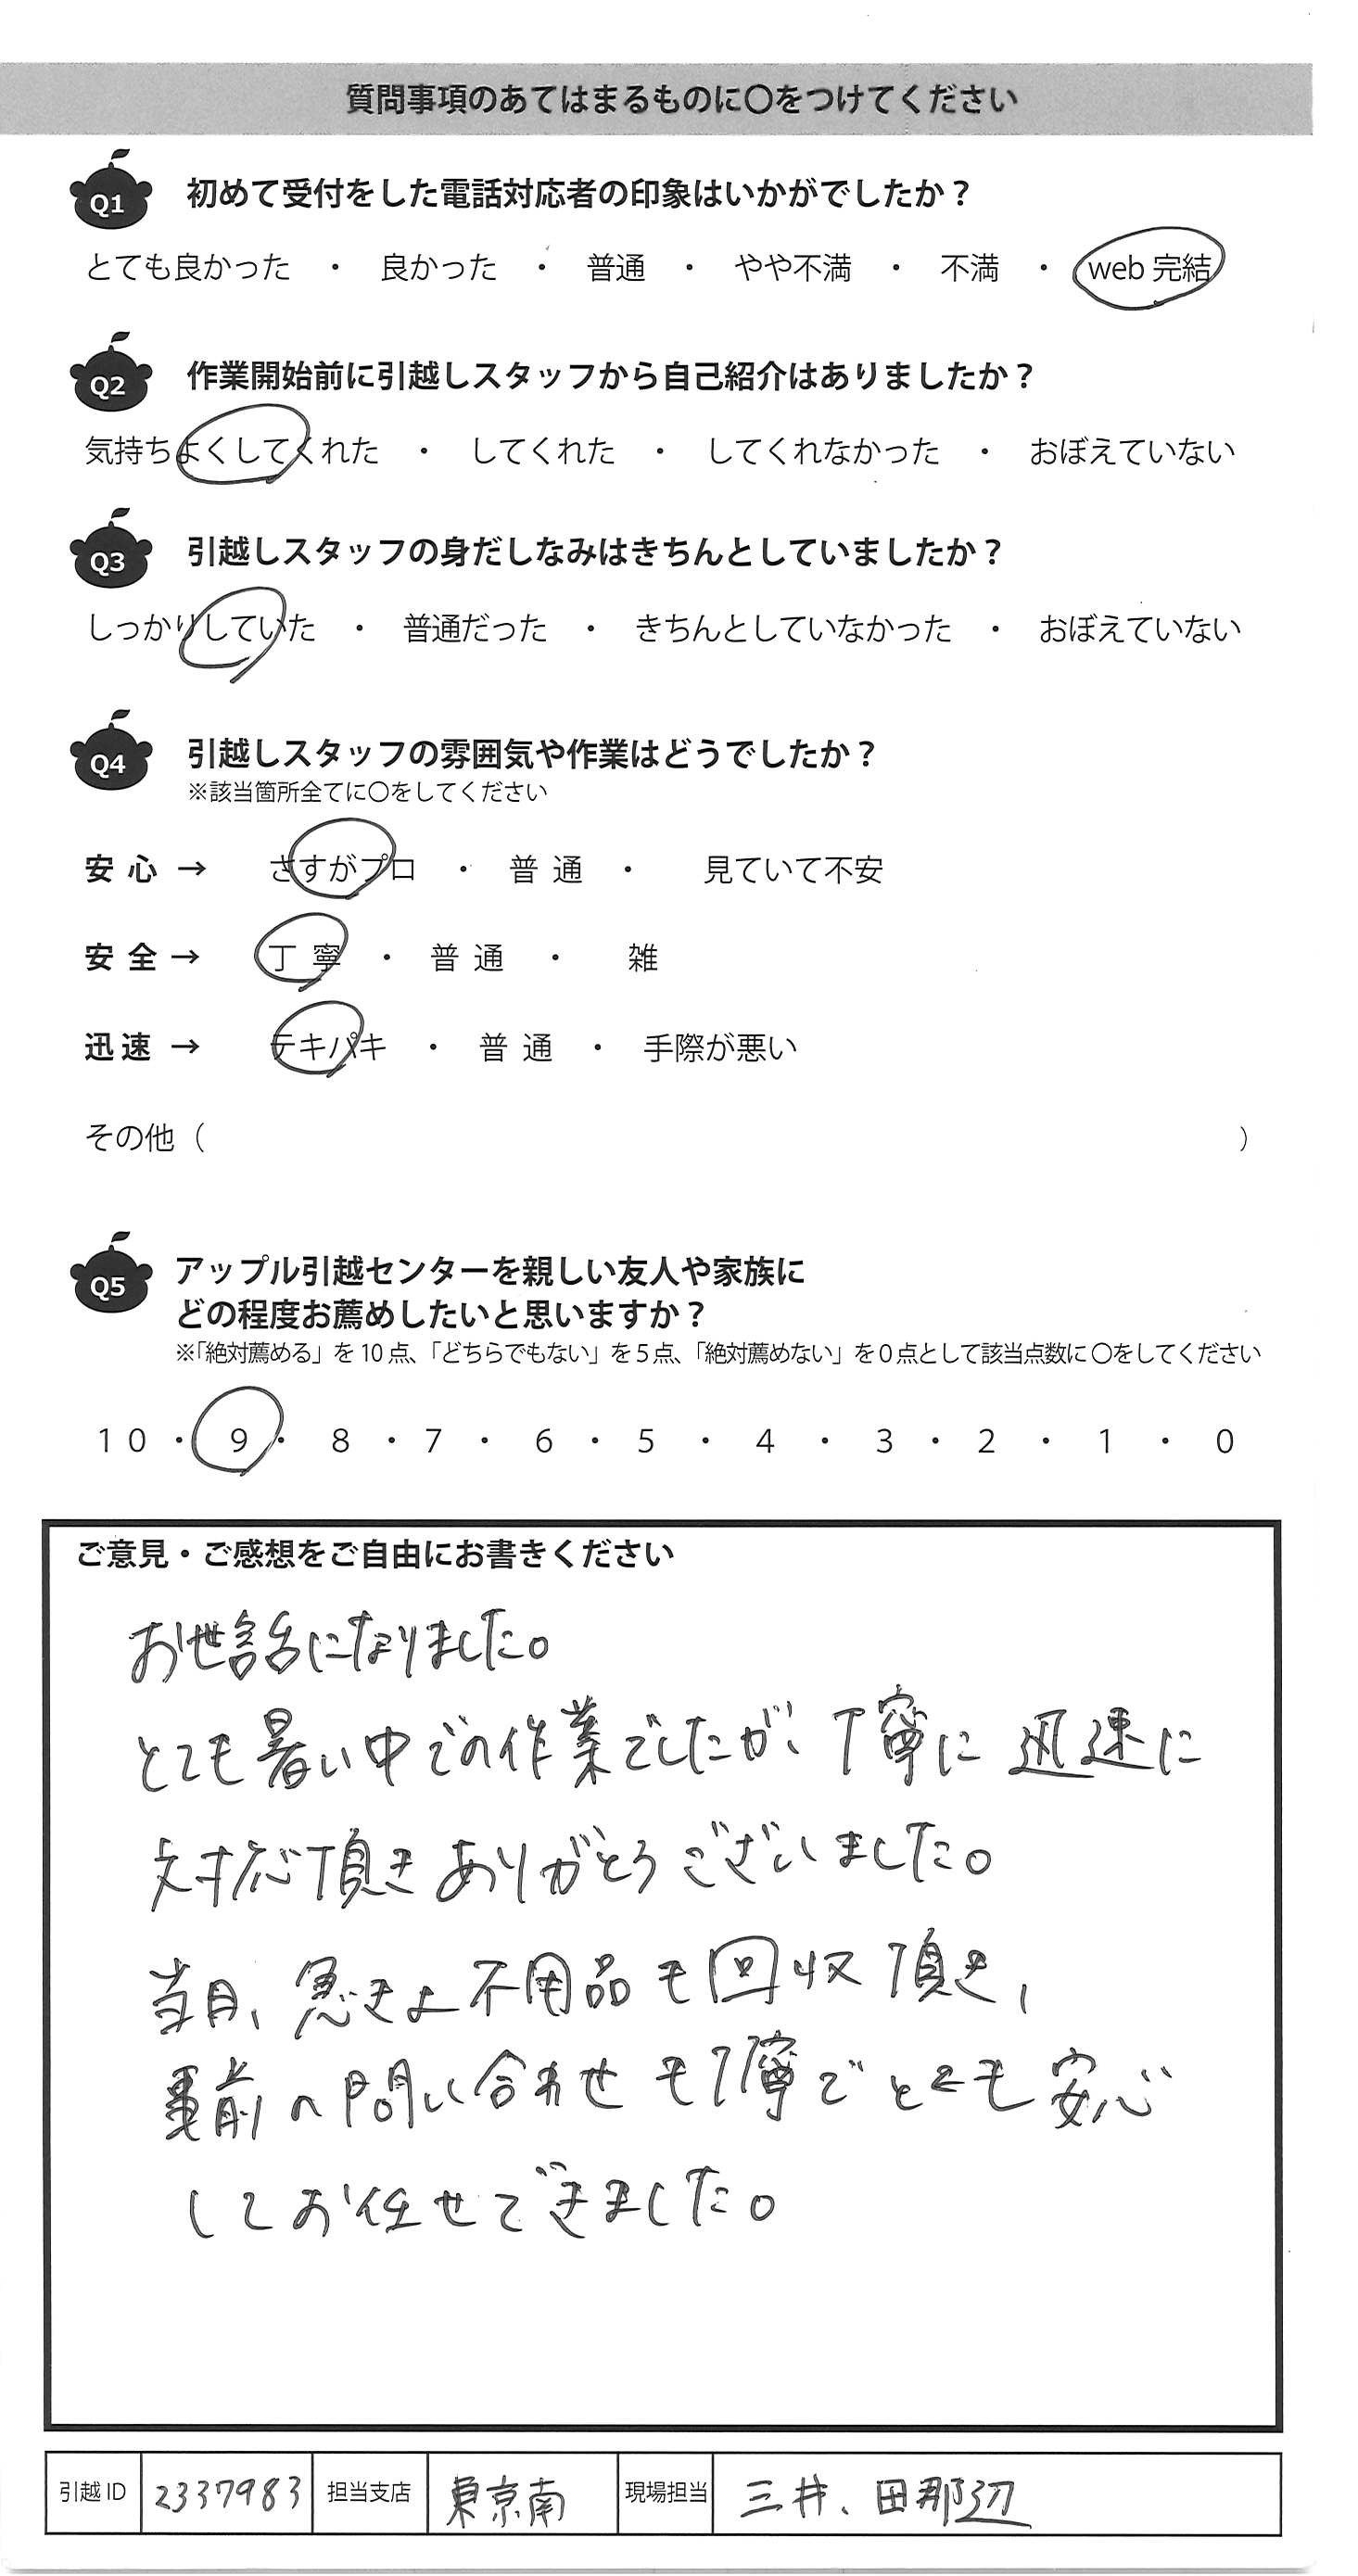 質問事項のあてはまるものに〇をつけてください
Q1 初めて受付をした電話対応者の印象はいかがでしたか？
とても良かった ・ 良かった ・ 普通 ・ やや不満 ・ 不満 ・ web 完結
Q2 作業開始前に引越しスタッフから自己紹介はありましたか？
気持ちよくしてくれた ・ してくれた ・ してくれなかった ・ おぼえていない
Q3 引越しスタッフの身だしなみはきちんとしていましたか？
しっかりしていた ・ 普通だった ・ きちんとしていなかった ・ おぼえていない
Q4 引越しスタッフの雰囲気や作業はどうでしたか？
※該当箇所全てに〇をしてください
安心 → さすがプロ ・ 普通 ・ 見ていて不安
安全 → 丁寧 ・ 普通 ・ 雑
迅速 → テキパキ ・ 普通 ・ 手際が悪い
その他（ ）
Q5 アップル引越センターを親しい友人や家族に
どの程度お薦めしたいと思いますか？
※「絶対薦める」を10点、「どちらでもない」を5点、「絶対薦めない」を0点として該当点数に〇をしてください
10 ・ 9 ・ 8 ・ 7 ・ 6 ・ 5 ・ 4 ・ 3 ・ 2 ・ 1 ・ 0
ご意見・ご感想をご自由にお書きください
お世話になりました。
とても暑い中での作業でしたが、丁寧に迅速に
対応頂きありがとうございました。
当日、急きょ不用品も回収頂き、
事前の問い合わせも丁寧でとても安心
してお任せできました。
引越ID 2337983 担当支店 東京南 現場担当 三井、田那辺